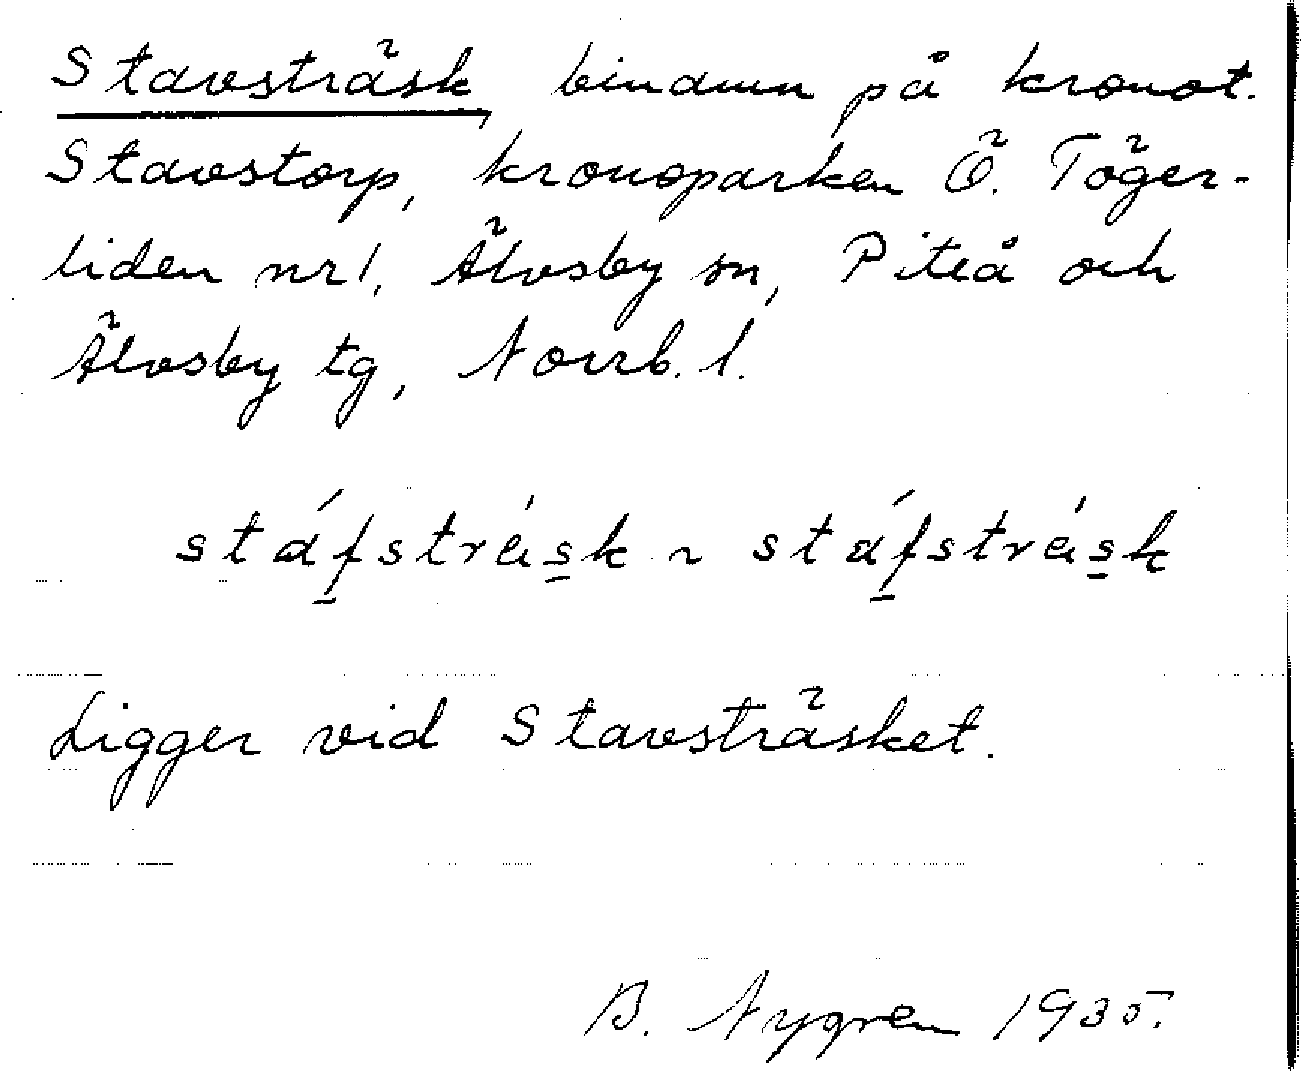 Stavsträsk, binamn på kronot.
Stavstorp, kronoparken Ö. Töger-
liden nr 1, Älvsby sn, Piteå och
Älvsby tg, Norrb. l.
stáfstrásk ~ stáfstrásk
Ligger vid Stavsträsket.
B. Nygren 1935.